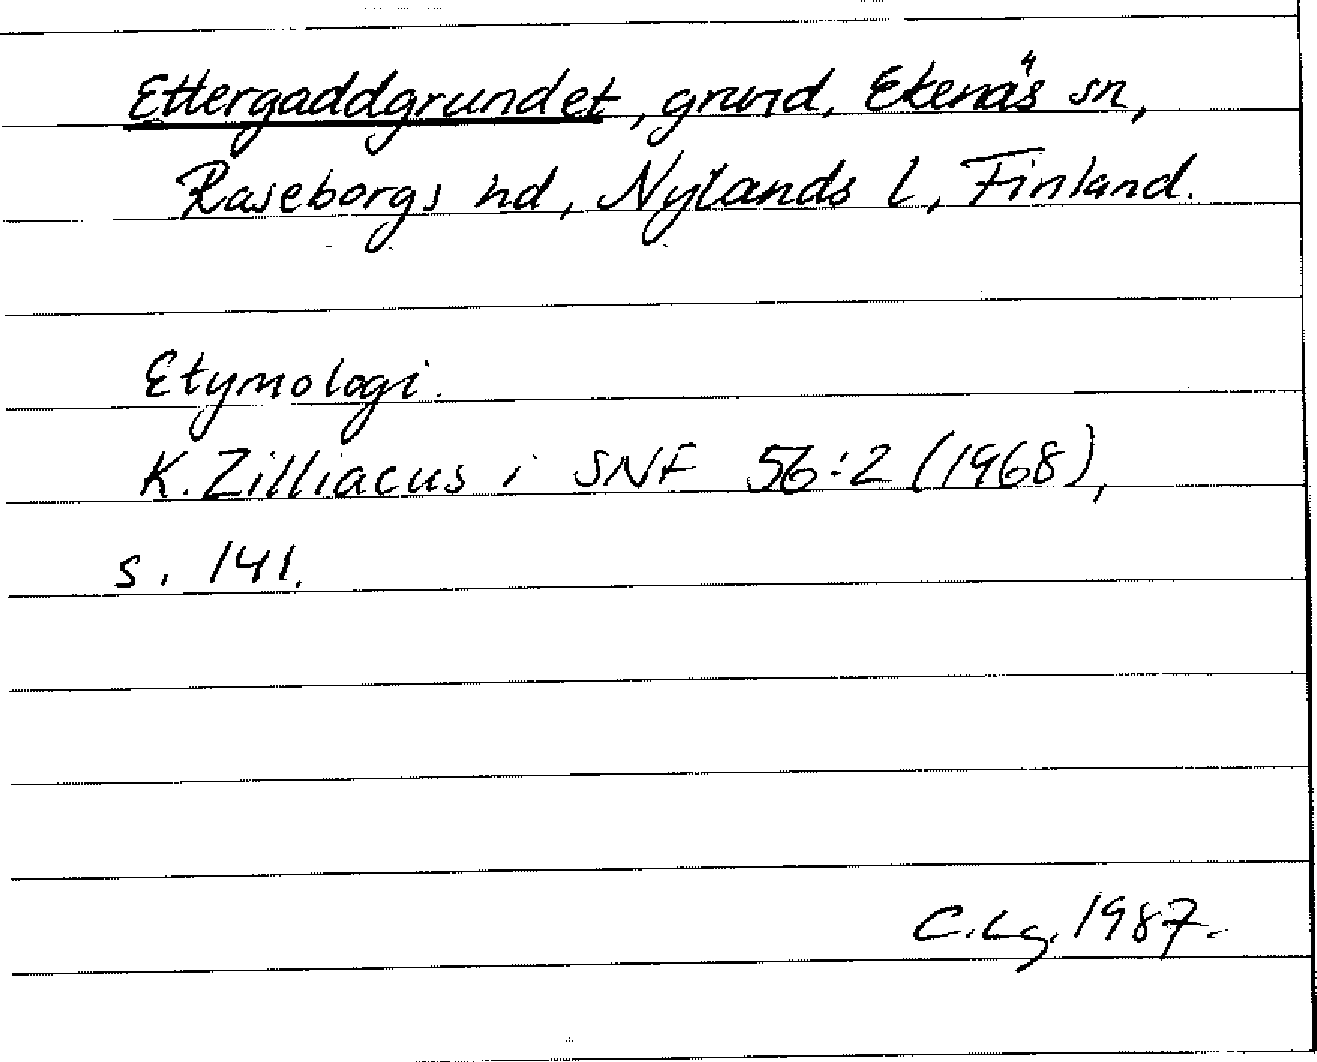 Ettergaddgrundet, grund, Ekenäs sn,
Raseborgs hd, Nylands l, Finland.
Etymologi.
K. Zilliacus i SNF 56:2 (1968),
s. 141.
C.Lg. 1987.